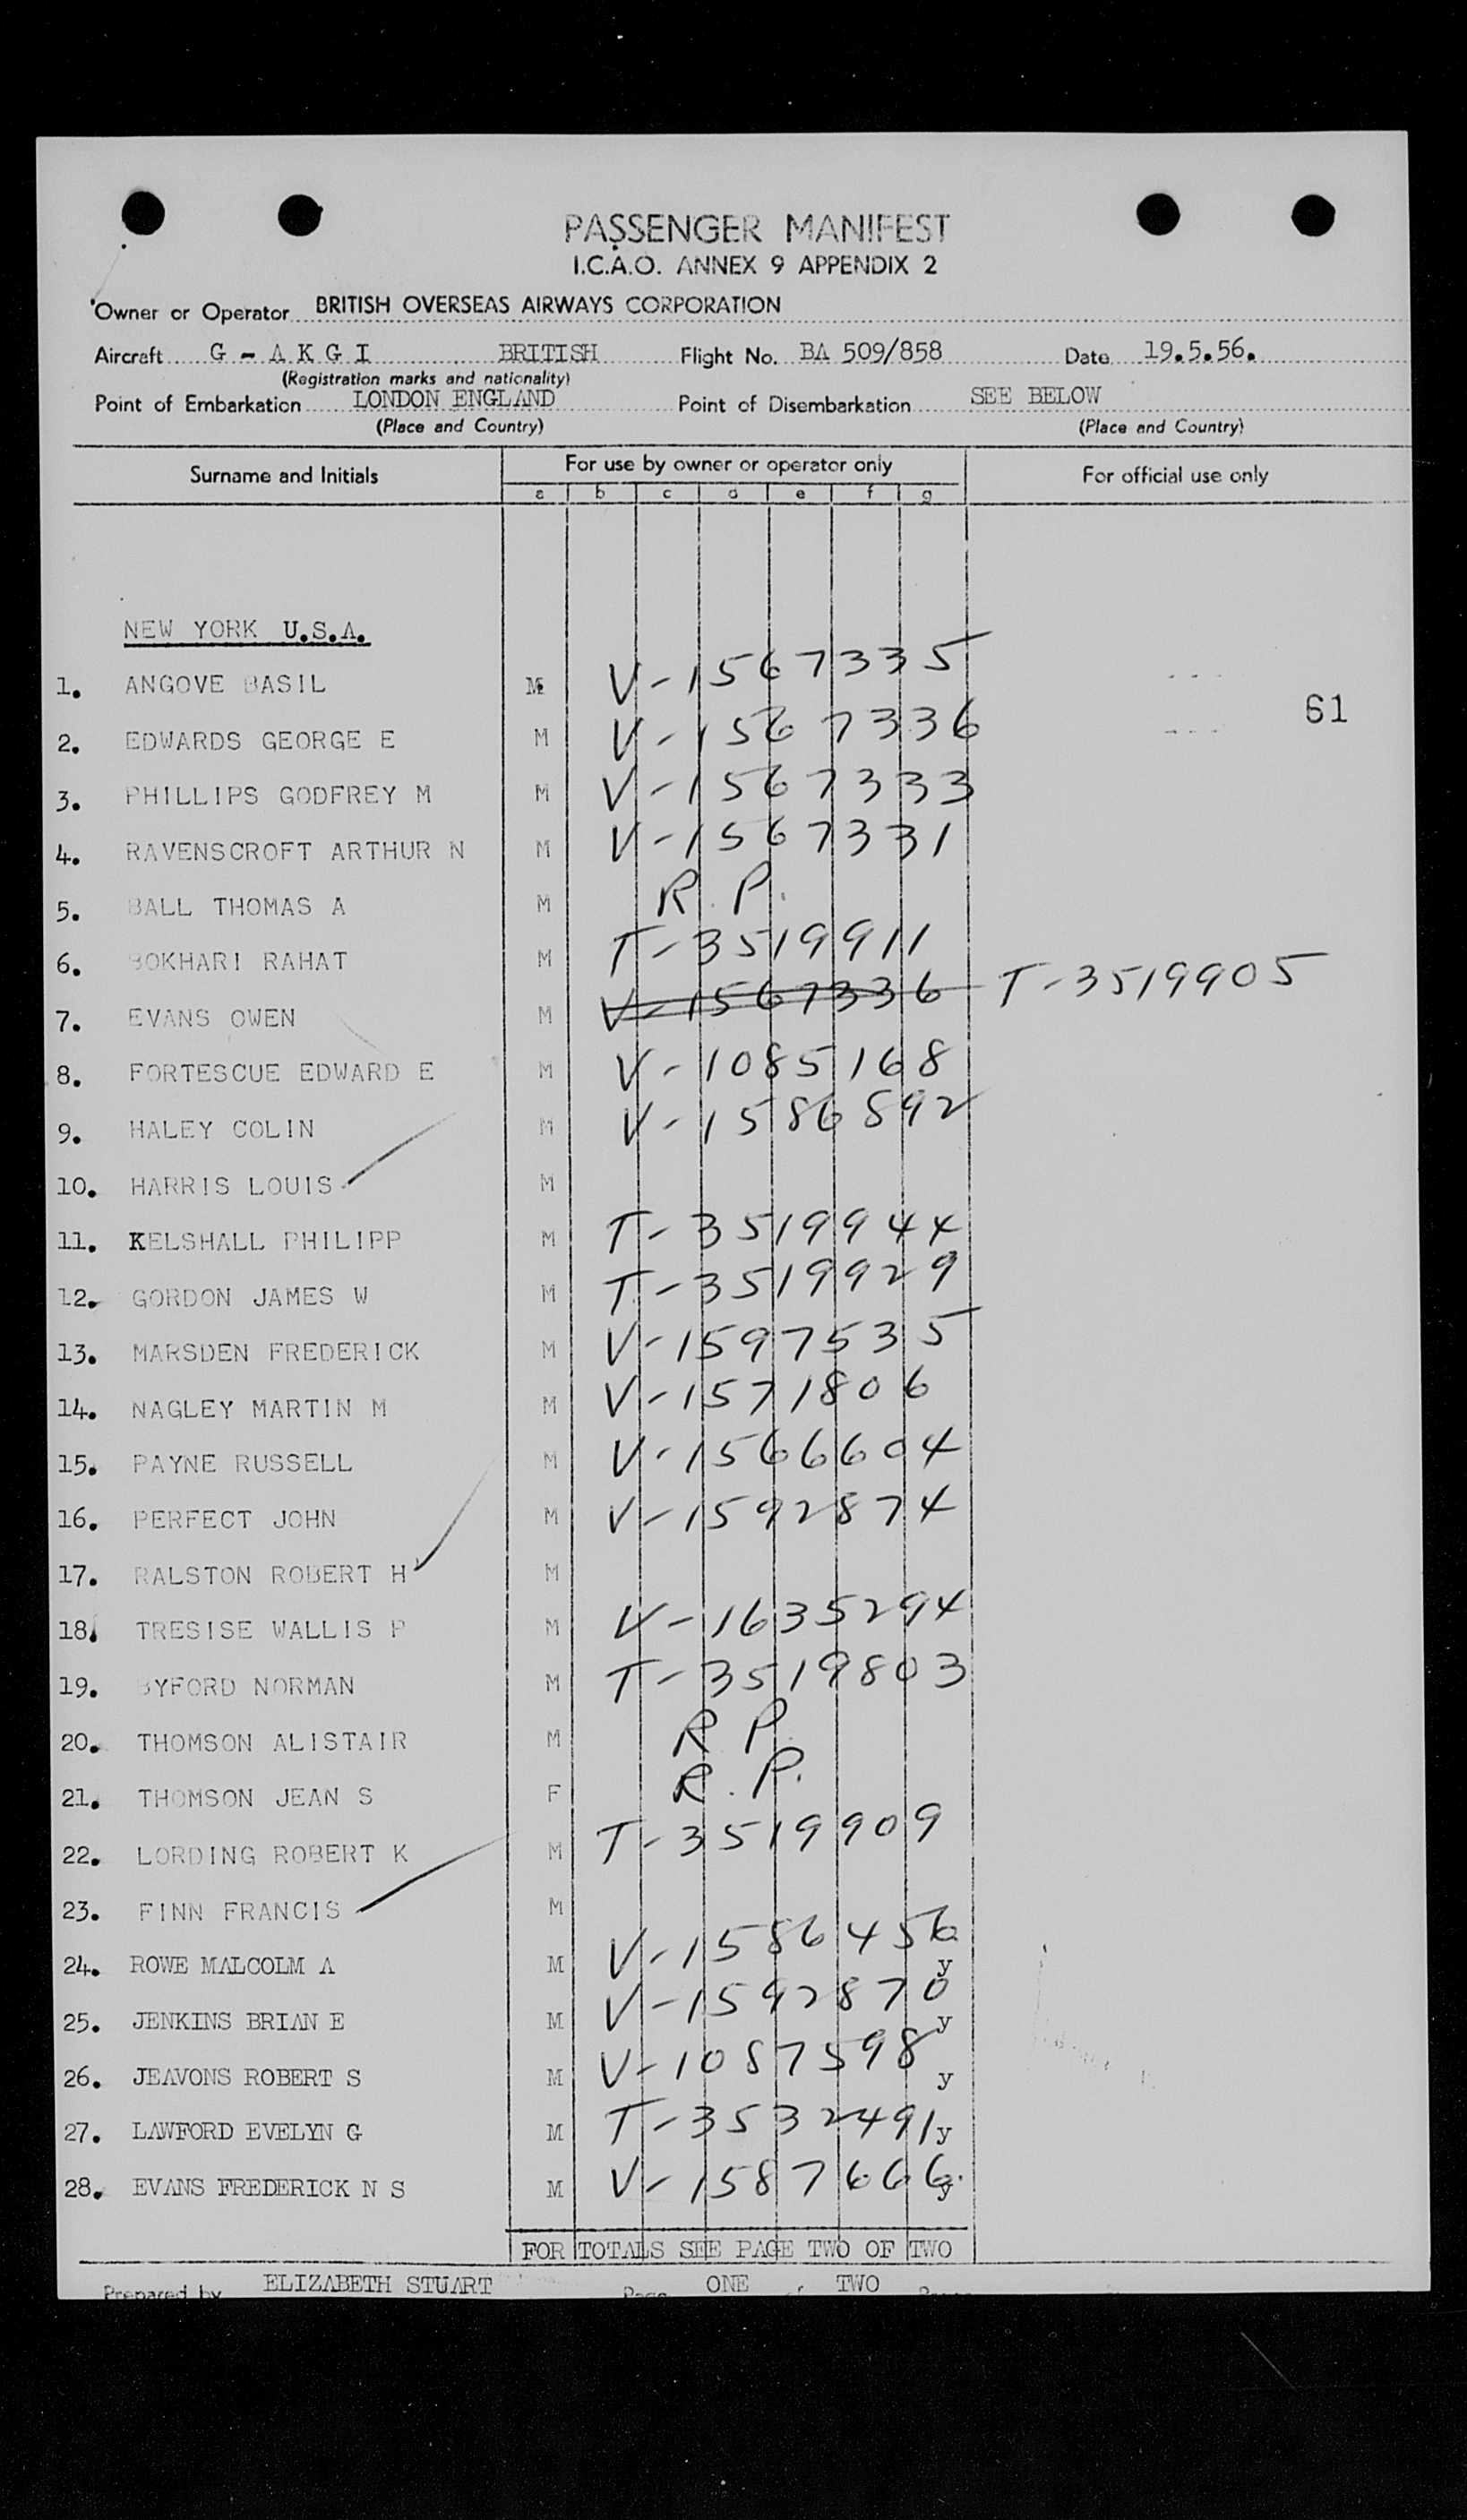 PASSENGER MANIFEST
I.C.A.O. ANNEX 9 APPENDIX 2
Owner or Operator BRITISH OVERSEAS AIRWAYS CORPORATION
Aircraft G - A K G I BRITISH Flight No. BA 509/858 Date 19.5.56.
(Registration marks and nationality)
Point of Embarkation LONDON ENGLAND Point of Disembarkation SEE BELOW
(Place and Country) (Place and Country)
Surname and Initials For use by owner or operator only For official use only
a b c d e f g
NEW YORK U.S.A.
1. ANGOVE BASIL M V-1567335
61
2. EDWARDS GEORGE E M V-1567336
3. PHILLIPS GODFREY M M V-1567333
4. RAVENSCROFT ARTHUR N M V-1567331
5. BALL THOMAS A M R.P.
6. BOKHARI RAHAT M T-3519911
7. EVANS OWEN M V-1567336 T-3519905
8. FORTESCUE EDWARD E M V-1085168
9. HALEY COLIN M V-1586892
10. HARRIS LOUIS M
11. KELSHALL PHILIPP M T-3519944
12. GORDON JAMES W M T-3519929
13. MARSDEN FREDERICK M V-1597535
14. NAGLEY MARTIN M M V-1571806
15. PAYNE RUSSELL M V-1566604
16. PERFECT JOHN M V-1592874
17. RALSTON ROBERT H M
18. TRESISE WALLIS P M V-1635294
19. BYFORD NORMAN M T-3519803
20. THOMSON ALISTAIR M R.P.
21. THOMSON JEAN S F R.P.
22. LORDING ROBERT K M T-3519909
23. FINN FRANCIS M
24. ROWE MALCOLM A M V-1586456 y
25. JENKINS BRIAN E M V-1592870 y
26. JEAVONS ROBERT S M V-1087598 y
27. LAWFORD EVELYN G M T-3532491 y
28. EVANS FREDERICK N S M V-1587666 y
FOR TOTALS SEE PAGE TWO OF TWO
Prepared by ELIZABETH STUART Page ONE of TWO